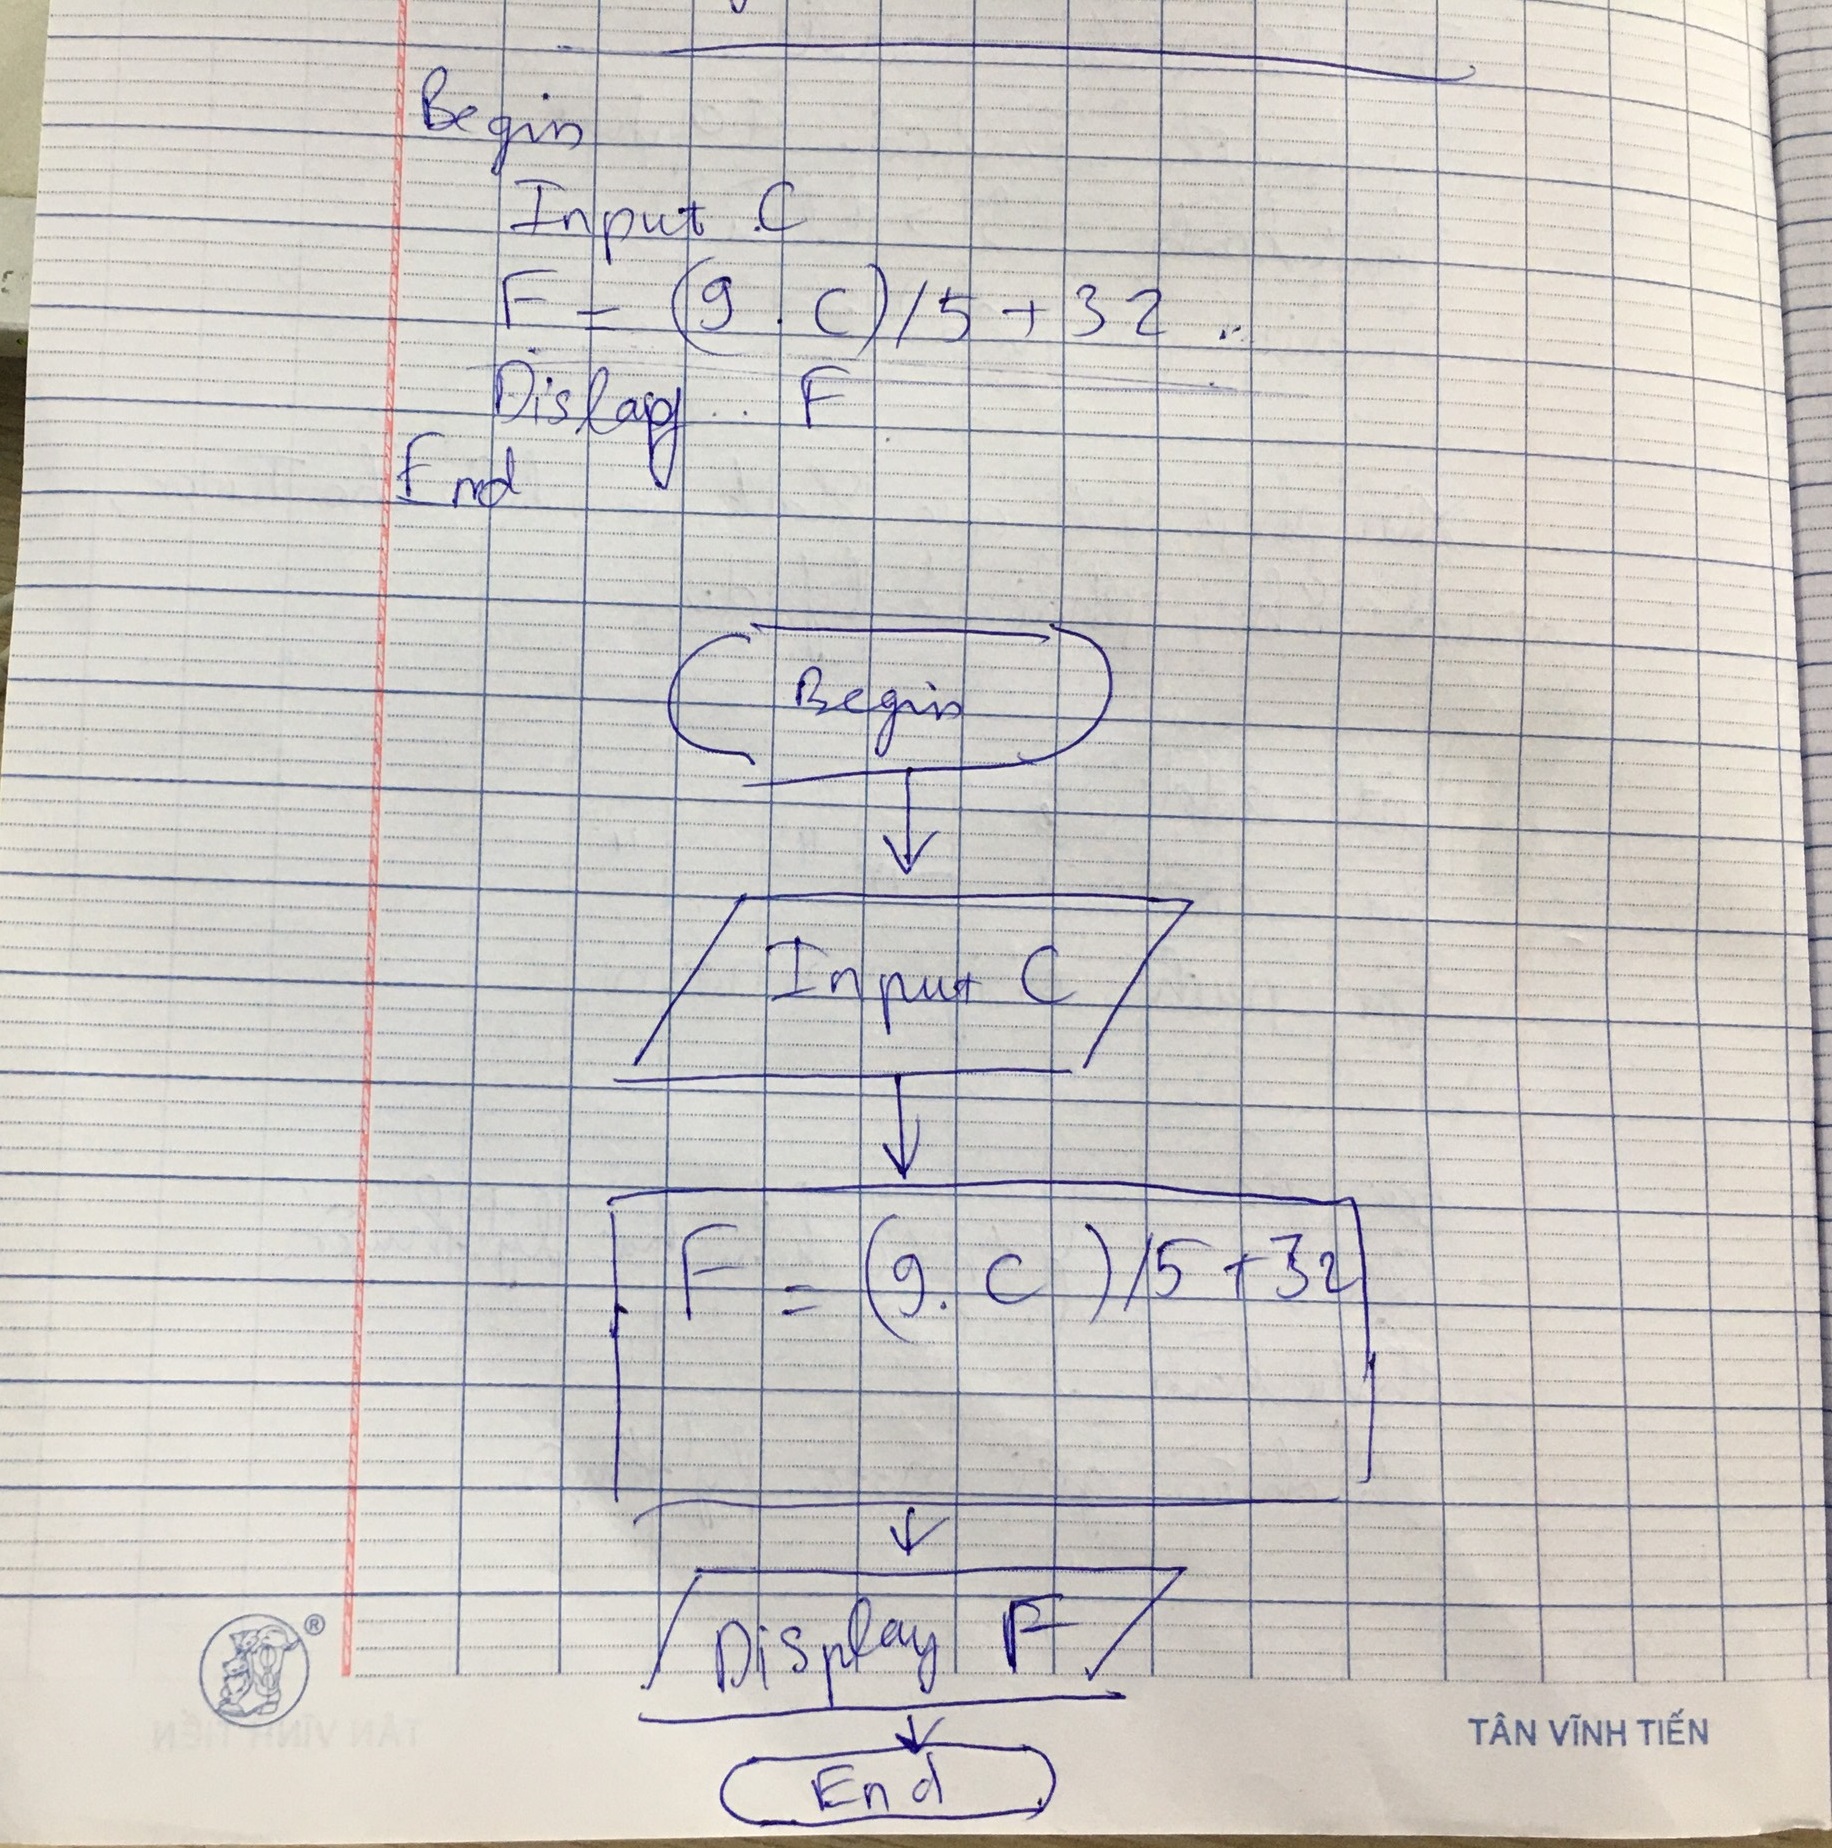 Begin
Input C
F = (9 . C)/5 + 32
Display F
End
Begin
Input C
F = (9. C )/5 +32
Display F
End
®
TÂN VĨNH TIẾN